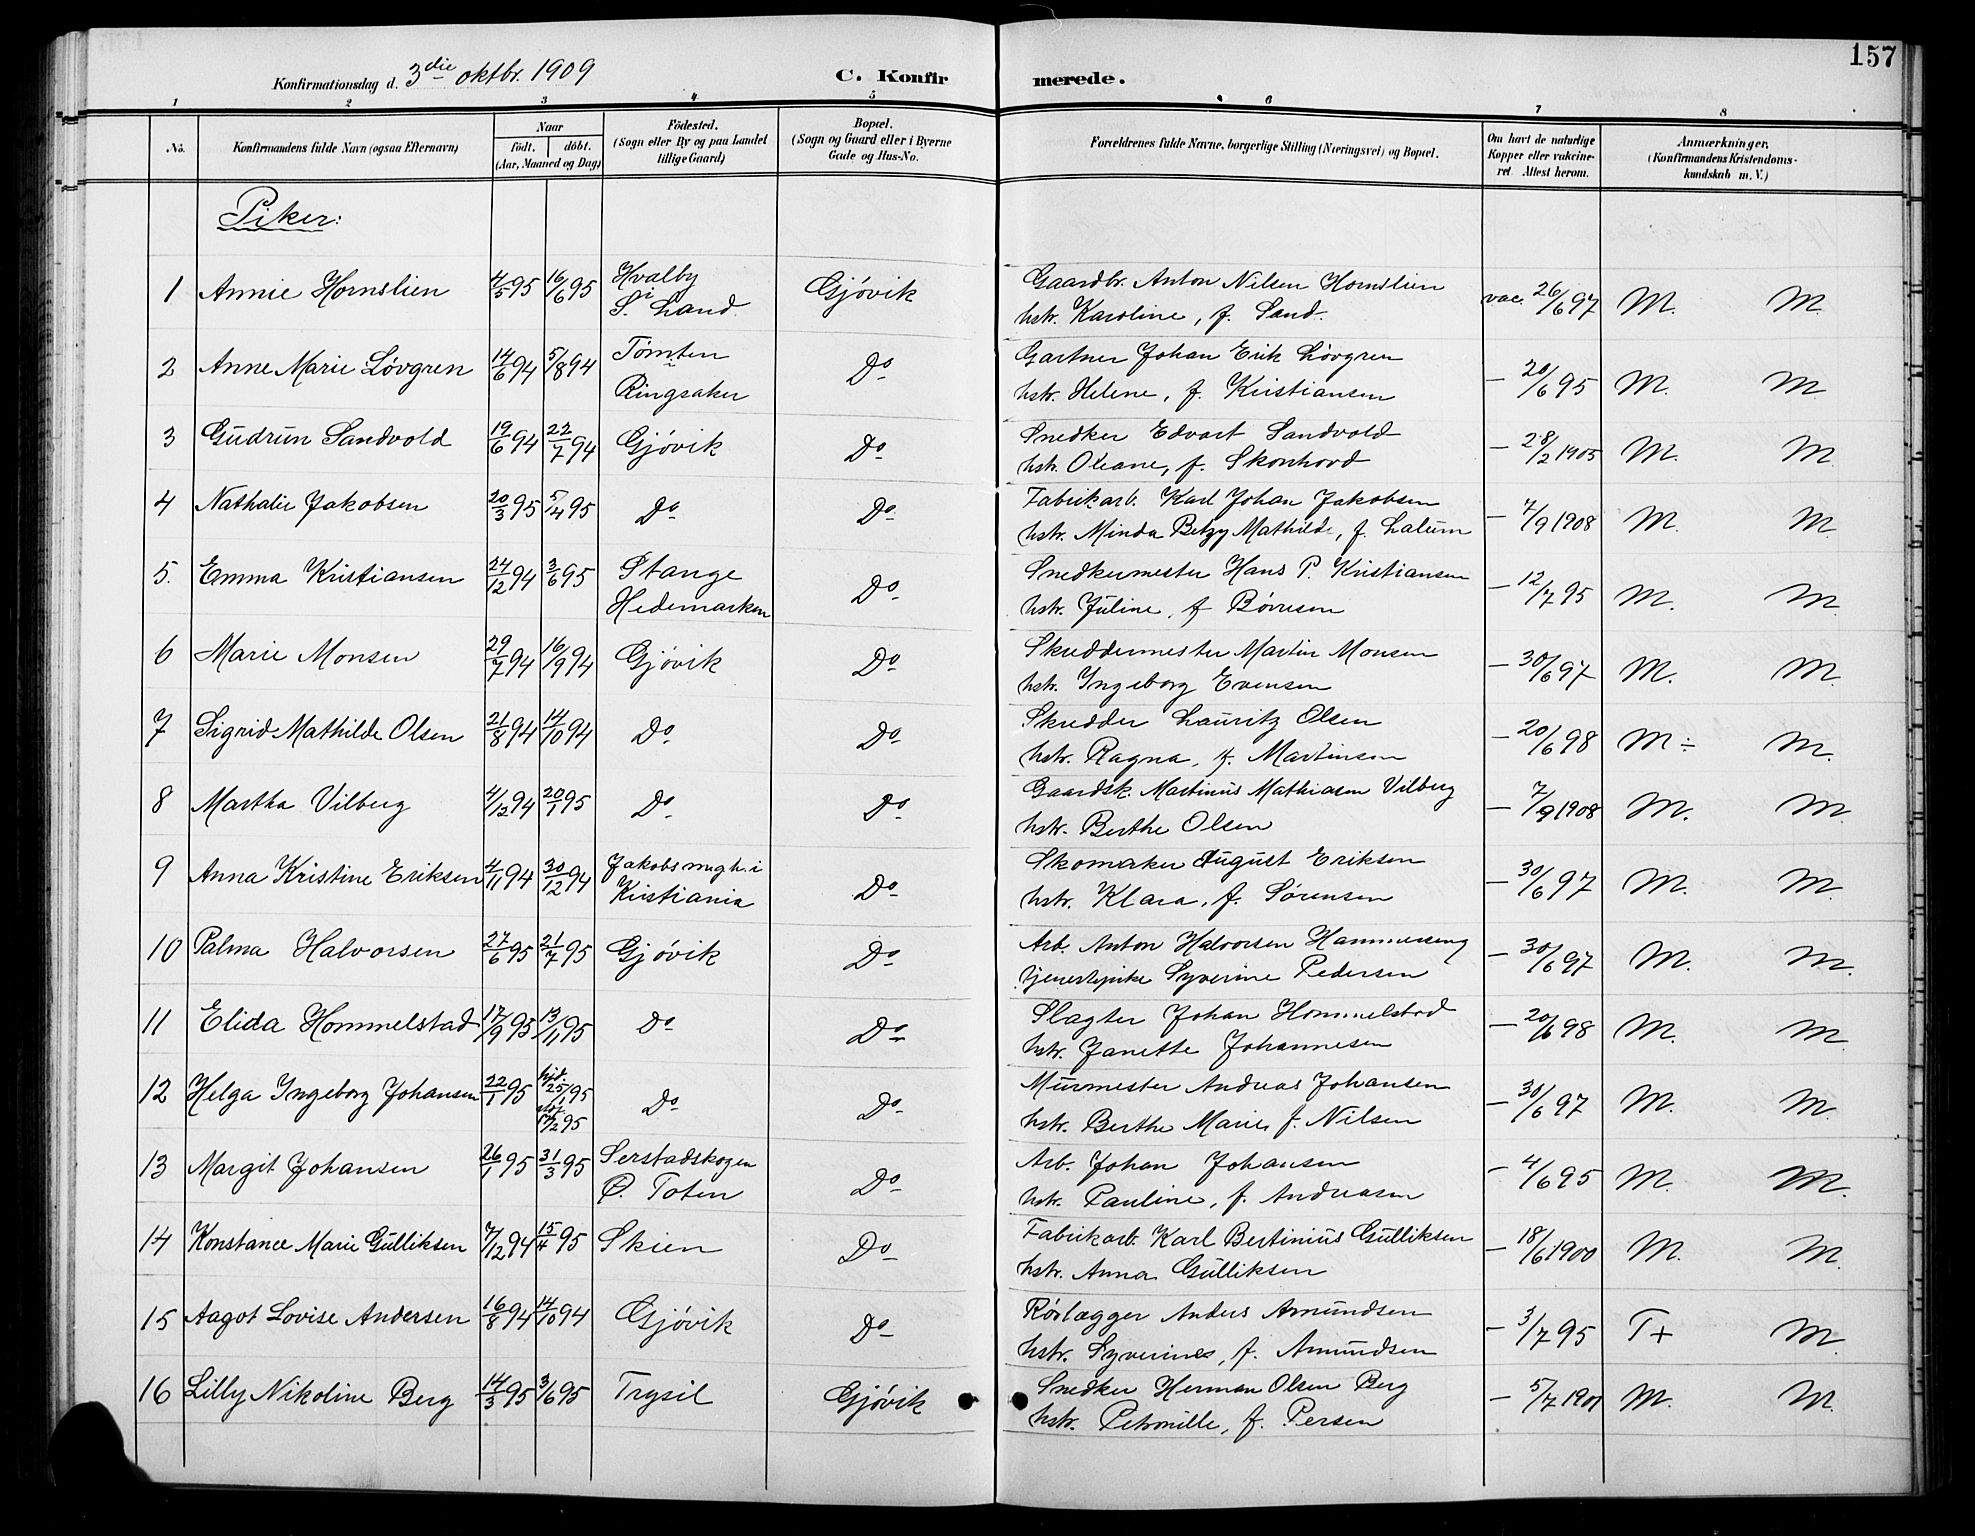 157
Konfirmationsdag d. 3die oktbr. 1909
C. Konfirmerede.
1 2 3 4 5 6 7 8
No.
Konfirmandens fulde Navn (ogsaa Efternavn)
Naar
födt. döbt.
(Aar, Maaned og Dag)
Födested.
(Sogn eller By og paa Landet
tillige Gaard)
Bopæl.
(Sogn og Gaard eller i Byerne
Gade og Hus-No.
Forældrenes fulde Navne, borgerlige Stilling (Næringsvei) og Bopæl.
Om havt de naturlige
Kopper eller vakcine-
ret. Attest herom.
Anmærkninger.
(Konfirmandens Kristendoms-
kundskab m. V.)
Piker:
1 Annie Hornslien 4/5 95 16/6 95 Hvalby i S. Land. Gjövik Gaardbr. Anton Nilsen Hornslien
hstr. Karoline, f. Sand. vac. 26/6 97 M. M.
2 Anne Marie Lövgren 14/6 94 5/8 94 Tömten Ringsaker Do Gartner Johan Erik Lövgren
hstr. Helene, f. Kristiansen — 20/6 95 M. M.
3 Gudrun Sandvold 19/6 94 22/7 94 Gjövik Do Snedker Edvart Sandvold
hstr. Oleane, f. Skonhovd — 28/2 1905 M. M.
4 Nathalie Jakobsen 20/3 95 5/4 95 Do Do Fabrikarb. Karl Johan Jakobsen
hstr. Minda Betzy Mathilde, f. Lalum — 7/9 1908 M. M.
5. Emma Kristiansen 24/12 94 3/6 95 Stange Hedemarken Do Snedkermester Hans P. Kristiansen
hstr. Juline, f Börresen — 12/7 95 M. M.
6 Marie Monsen 29/7 94 16/9 94 Gjövik Do Skreddermester Martin Monsen
hstr. Ingeborg Evensen — 30/6 97 M. M.
7 Sigrid Mathilde Olsen 21/8 94 14/10 94 Do Do Skredder Lauritz Olsen
hstr. Ragna, f. Martinsen — 20/6 98 M÷ M.
8 Martha Vilberg 4/12 94 20/1 95 Do Do Gaardsk. Martinius Mathiasen Vilberg
hstr. Berthe Olsen — 7/9 1908 M. M.
9 Anna Kristine Eriksen 4/11 94 30/12 94 Jakobs mgh. i Kristiania Do Skomaker August Eriksen
hstr. Klara, f. Sörensen — 30/6 97 M. M.
10 Palma Halvorsen 27/6 95 21/7 95 Gjövik Do Arb. Anton Halvorsen Hammerseng
tjenestepike Syverine Pedersen — 30/6 97 M. M.
11 Elida Hommelstad 17/9 95 13/11 95 Do Do Slagter Johan Hommelstad
hstr. Janette Johannesen — 20/6 98 M. M.
12 Helga Ingeborg Johansen 22/1 95 hjd. 25/1 95 Do Do Murmester Andreas Johansen
hstr. Berthe Marie, f. Nilsen — 30/6 97 M. M.
13 Margit Johansen 26/1 95 31/3 95 Serstadskogen Ö. Toten Do Arb. Johan Johansen
hstr. Pauline, f. Andreasen — 4/6 95 M. M.
14 Konstance Marie Gulliksen 7/12 94 15/4 95 Skien Do Fabrikarb. Karl Bertinius Gulliksen
hstr. Anna Gulliksen — 18/6 1900 M. M.
15 Aagot Lovise Andersen 16/8 94 14/10 94 Gjövik Do Rörlægger Anders Amundsen
hstr. Syverine, f. Amundsen — 3/7 95 T+ M.
16 Lilly Nikoline Berg 14/3 95 3/6 95 Trysil Gjövik Snedker Herman Olsen Berg
hstr. Petronille, f. Persen — 5/7 1901 M. M.